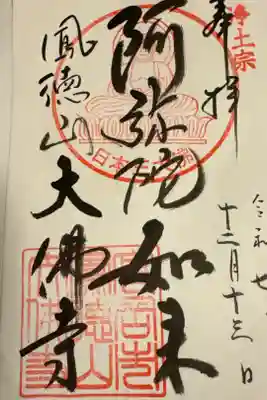 浄土宗
奉拝
令和七
十二月十三日
阿弥陀如来
鳳徳山大佛寺